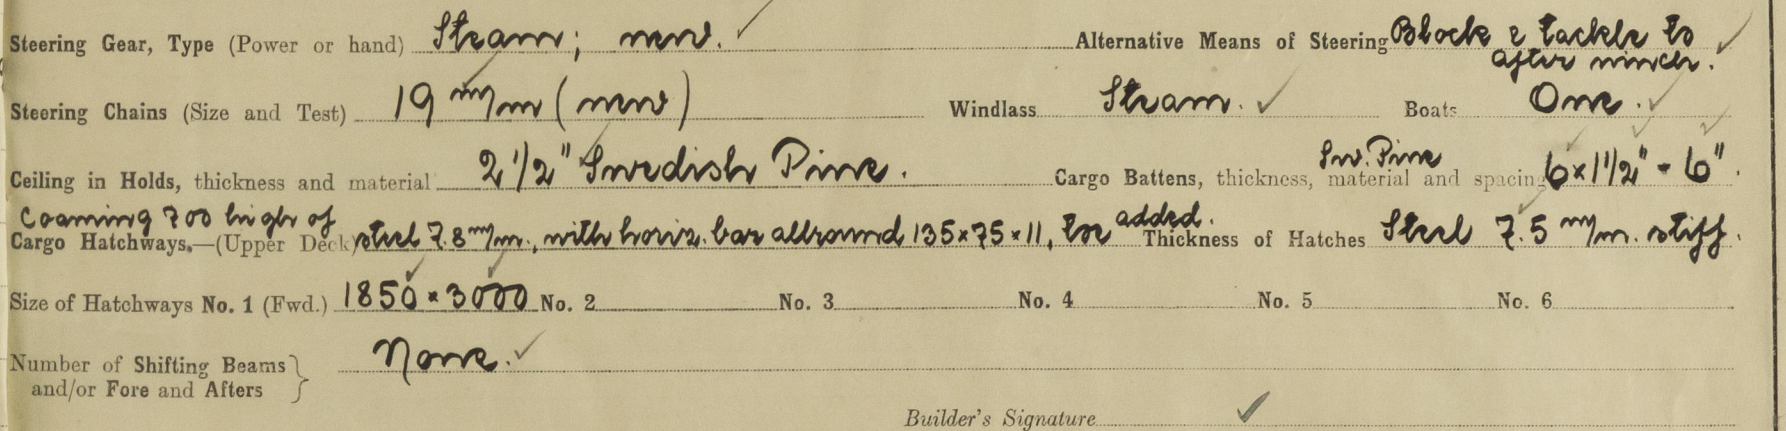 Steering Gear, Type (Power or hand) Steam; new. Alternative Means of Steering Block & tackle to
after winch.
Steering Chains (Size and Test) 19 m/m (new) Windlass Steam. Boats One.
Ceiling in Holds, thickness and material 2 1/2" Swedish Pine. Cargo Battens, thickness, material and spacing Sw. Pine 6×1 1/2" - 6".
Coaming 700 high of
Cargo Hatchways.—(Upper Deck) steel 7.8 m/m., with horiz. bar allround 135×75×11, to be added. Thickness of Hatches Steel 7.5 m/m. stiff.
Size of Hatchways No. 1 (Fwd.) 1850 × 3000 No. 2 No. 3 No. 4 No. 5 No. 6
Number of Shifting Beams } None.
and/or Fore and Afters
Builder's Signature